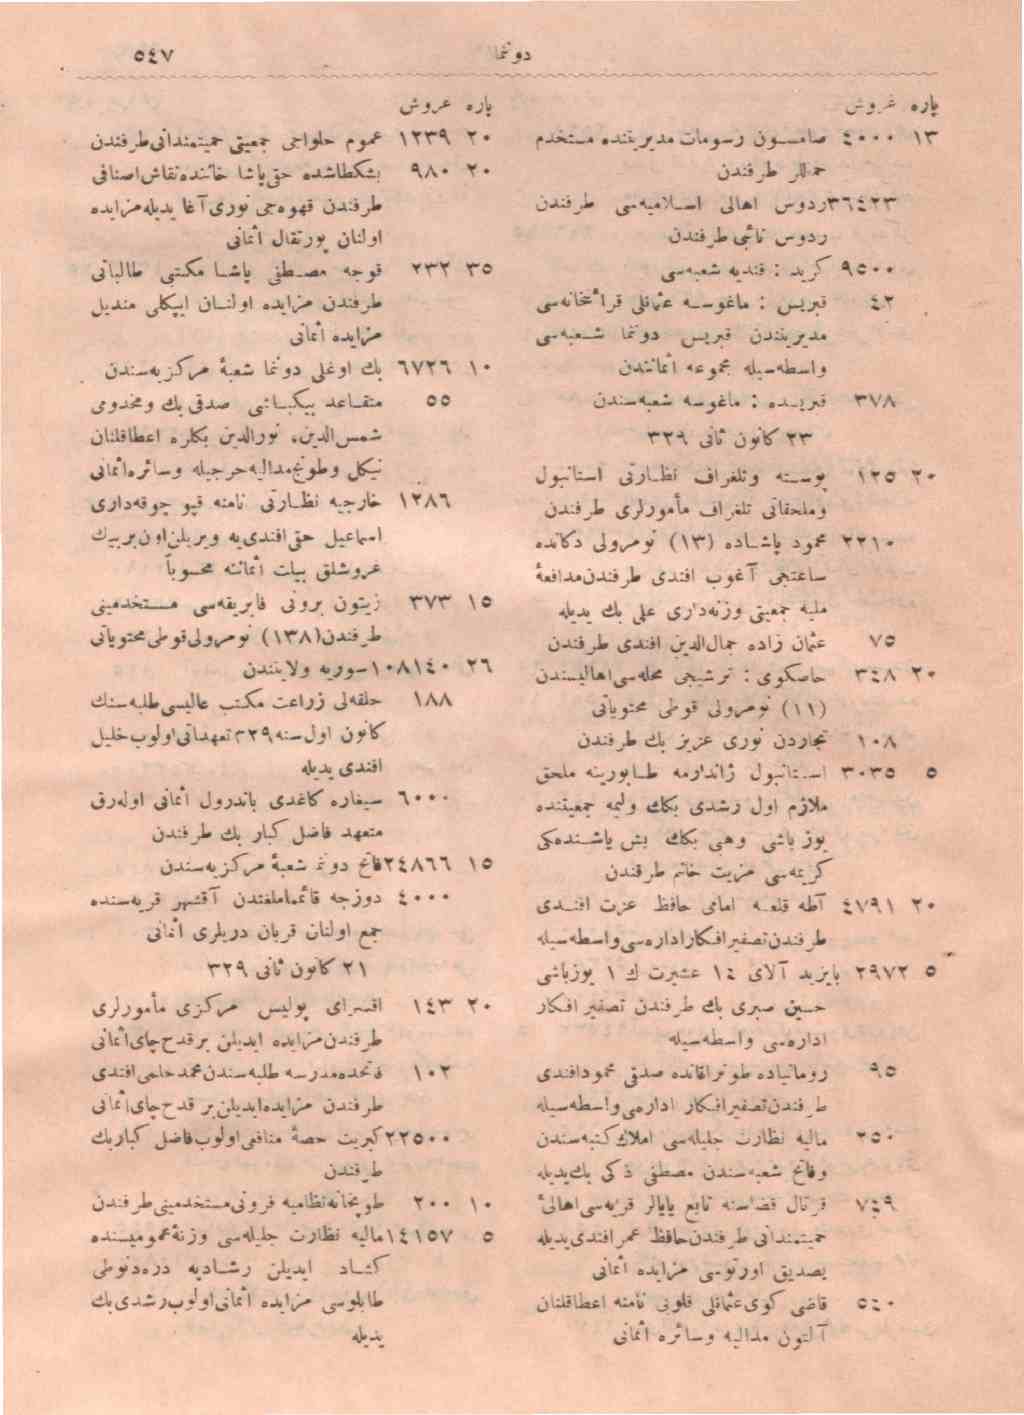 دونما ٥٤٧
پاره غروش
١٣ ٤٠٠٠ صامسون رسومات مديريتنده مستخدم
حماللر طرفندن
٣٦٤٢٣ ردوس اهالى اسلاميه‌سى طرفندن
ردوس نائبى طرفندن
٩٥٠٠ كريد : قنديه شعبه‌سى
٤٢ قبريس : ماغوسه عثمانلى قرائتخانه‌سى
مديريتندن قبريس دونما شعبه‌سى
واسطه‌سيله مجموعه اثمانندن
٣٧٨ قبريسده : ماغوسه شعبه‌سندن
٢٣ كانون ثانى ٣٢٩
٢٠ ١٢٥ پوسته وتلغراف نظارتى استانبول
وملحقاتى تلغراف مأمورلرى طرفندن
٢٢١٠ محمود پاشاده (١٣) نومرولى دكانده
ساعتجى آغوب افندى طرفندن مدافعۀ
مليه جمعيتى وزنه‌دارى على بك يديله
٧٥ عثمان زاده جمال‌الدين افندى طرفندن
٢٠ ٣٤٨ خاصكوى : ترشيجى محله‌سى اهاليسندن
(١١) نومرولى قوطى محتوياتى
١٠٨ تجاردن نورى عزيز بك طرفندن
٥ ٣٠٣٥ استانبول ژاندارمه طابورينه ملحق
ملازم اول رشدى بكك وليمه جمعيتنده
يوز باشى وهبى بكك بش ياشنده‌كى
كريمه‌سى مزيت خانم طرفندن
٢٠ ٤٧٩١ آطه قلعه امامى حافظ عزت افندى
طرفندن تصفير افكار اداره‌سى واسطه سيله
٥ ٢٩٧٢ بايزيد آلاى ١٤ عشيرت ك ١ يوزباشى
حسين صبرى بك طرفندن تصفير افكار
اداره‌سى واسطه سيله
٩٥ رومانياده طوتراقانده صدقى محمود افندى
طرفندن تصفير افكار اداره‌سى واسطه سيله
٢٥٠ ماليه نظارت جليله‌سى املاك كتبه سندن
وفاتح شعبه سندن مصطفى ذكى بك يديله
٧٤٩ قرتال قضاسنه تابع ياىالر قريه سى اهالئ
حميتمندانى طرفندن حافظ عمر افندى يديله
يصديق اورتوسى مزايده اثمانى
٥٤٠ قاضى كوى عثمانلى قلوبى نامنه اعطاقلنان
آلتون مداليه وسائره اثمانى
پاره غروش
٢٠ ١٢٣٩ عموم حلواجى جمعيتى حميتمندانى طرفندن
٢٠ ٩٨٠ بشكطاشده حقى پاشا خاننده نقاش اصنافى
طرفندن قهوه‌جى نورى آغا يديله مزايده
اولنان پورتقال اثمانى
٣٥ ٢٣٢ قوجه مصطفى پاشا مكتبى طالباتى
طرفندن مزايده اولنان ايپكلى منديل
مزايده اثمانى
١٠ ٦٧٢٦ بك اوغلى دونما شعبۀ مركزيه‌سندن
٥٥ متقاعد بيكباشى صدقى بك ومخدومى
شمس‌الدين، نورالدين بكلره اعطاقلنان
نيكل وطونج مداليه خرجيله وسائره اثمانى
١٢٨٦ خارجيه نظارتى نامنه قپو چوقه‌دارى
اسماعيل حقى افندى‌يه ويريلن اون بربيك
غروشلق بيلت اثماننه محسوباً
١٥ ٣٧٣ زيتون برونى فابريقه‌سى مستخدمينى
طرفندن (١٣٨) نومرولى قوطى محتوياتى
٢٦ ١٠٨١٤٠ سوريه ولايتندن
١٨٨ حلقه‌لى زراعت مكتب عاليسى طلبه سنك
كانون اول سنه ٣٢٩ تعهداتى اولوب خليل
افندى يديله
٦٠٠٠ سيغاره كاغدى باندرول اثمانى اوله‌رق
متعهد فاضل كبار بك طرفندن
١٥ ٢٤٨٦٦ فاتح دونما شعبۀ مركزيه‌سندن
٤٠٠٠ دوزجه قائممقاملغندن آقشهر قريه سنده
جمع اولنان قربان دريلرى اثمانى
٢١ كانون ثانى ٣٢٩
٢٠ ١٤٣ اقسراى پوليس مركزى مأمورلرى
طرفندن مزايده ايديلن برقدح چاى اثمانى
١٠٢ فاتحده مدرسه طلبه سندن محمد حلمى افندى
طرفندن مزايده ايديلن بر قدح چاى اثمانى
٢٢٥٠٠ كبريت حصۀ منافعى اولوب فاضل كبار بك
طرفندن
١٠ ٢٠٠ طوپخانه نظاميه فرونى مستخدمينى طرفندن
٥ ١٤١٥٧ ماليه نظارت جليله سى وزنۀ عموميسنده
كشاد ايديلن رشاديه دره‌دنوطى
طابلوسى مزايده اثمانى اولوب رشدى بك
يديله